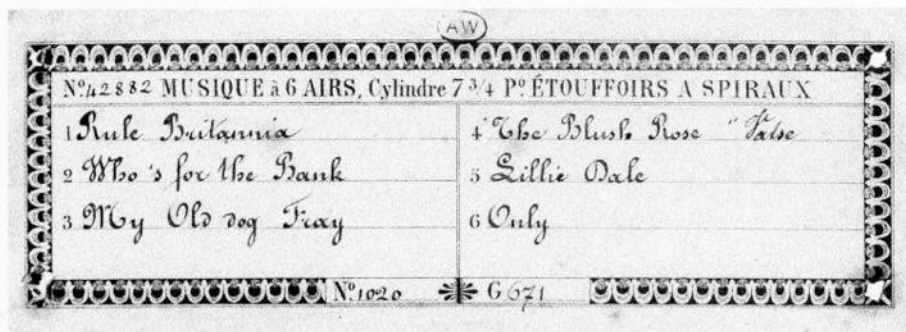 AW
Nº 42882 MUSIQUE à 6 AIRS, Cylindre 7 3/4 Pº. ÉTOUFFOIRS A SPIRAUX
1 Rule Britannia
2 Who's for the Bank
3 My Old dog Fray
4 The Blush Rose " Valse
5 Lillie Dale
6 Only
Nº. 1020 G 671